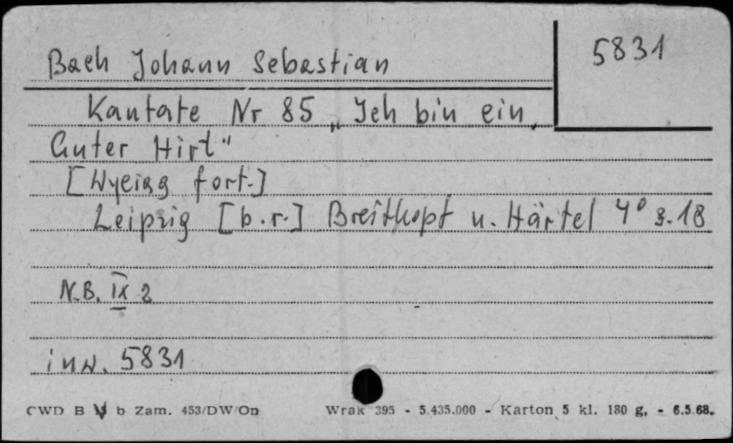 5831
Bach Johann Sebastian
Kantate Nr 85 „Ich bin ein
Guter Hirt"
[Wyciąg fort.]
Leipzig [b.r.] Breitkopf u. Härtel 4° s. 18
N.B. IX 2
inw. 5831
CWD B V b Zam. 453/DW/On Wrak 395 - 5.435.000 - Karton 5 kl. 180 g, - 6.5.68.